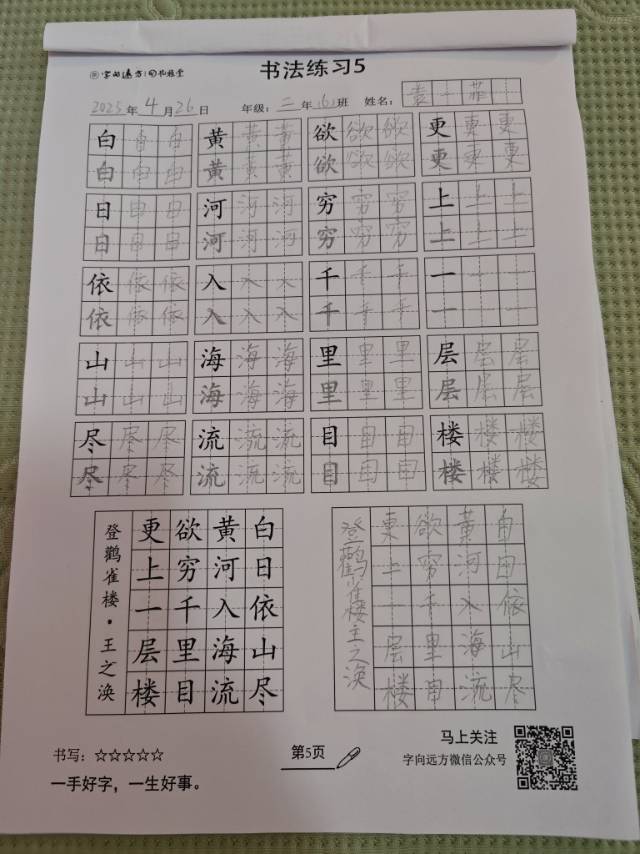 字向远方
书法练习5
2025年4月26日 年级：二年(6)班 姓名：
白白白 黄黄黄 欲欲欲 更更更
白白白 黄黄黄 欲欲欲 更更更
日日日 河河河 穷穷穷 上上上
日日日 河河河 穷穷穷 上上上
依依依 入入入 千千千 一一一
依依依 入入入 千千千 一一一
山山山 海海海 里里里 层层层
山山山 海海海 里里里 层层层
尽尽尽 流流流 目目目 楼楼楼
尽尽尽 流流流 目目目 楼楼楼
登鹳雀楼·王之涣
白日依山尽
黄河入海流
欲穷千里目
更上一层楼
登鹳雀楼王之涣
白日依山尽
黄河入海流
欲穷千里目
更上一层楼
书写：☆☆☆☆☆
一手好字，一生好事。
第5页
马上关注
字向远方微信公众号